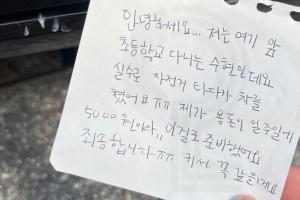 안녕하세요... 저는 여기 앞
초등학교 다니는 수현인데요
실수로 자전거 타다가 차를
쳤어요ㅠㅠ 제가 용돈이 일주일에
5000원이라,, 이걸로 준비했어요
죄송합니다ㅠㅠ 커서 꼭 갚을게요